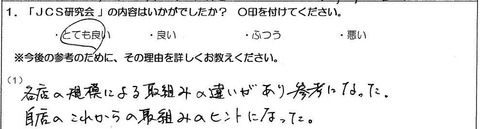 1．「ＪＣＳ研究会」の内容はいかがでしたか？　〇印を付けてください。
・とても良い　・良い　・ふつう　・悪い
※今後の参考のために、その理由を詳しくお教えください。
(1)
各店の規模による取組みの違いがあり参考になった。
自店のこれからの取組みのヒントになった。